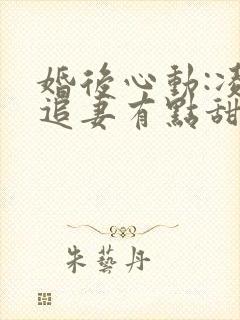 婚後心動:凌
追妻有點甜
朱藝丹